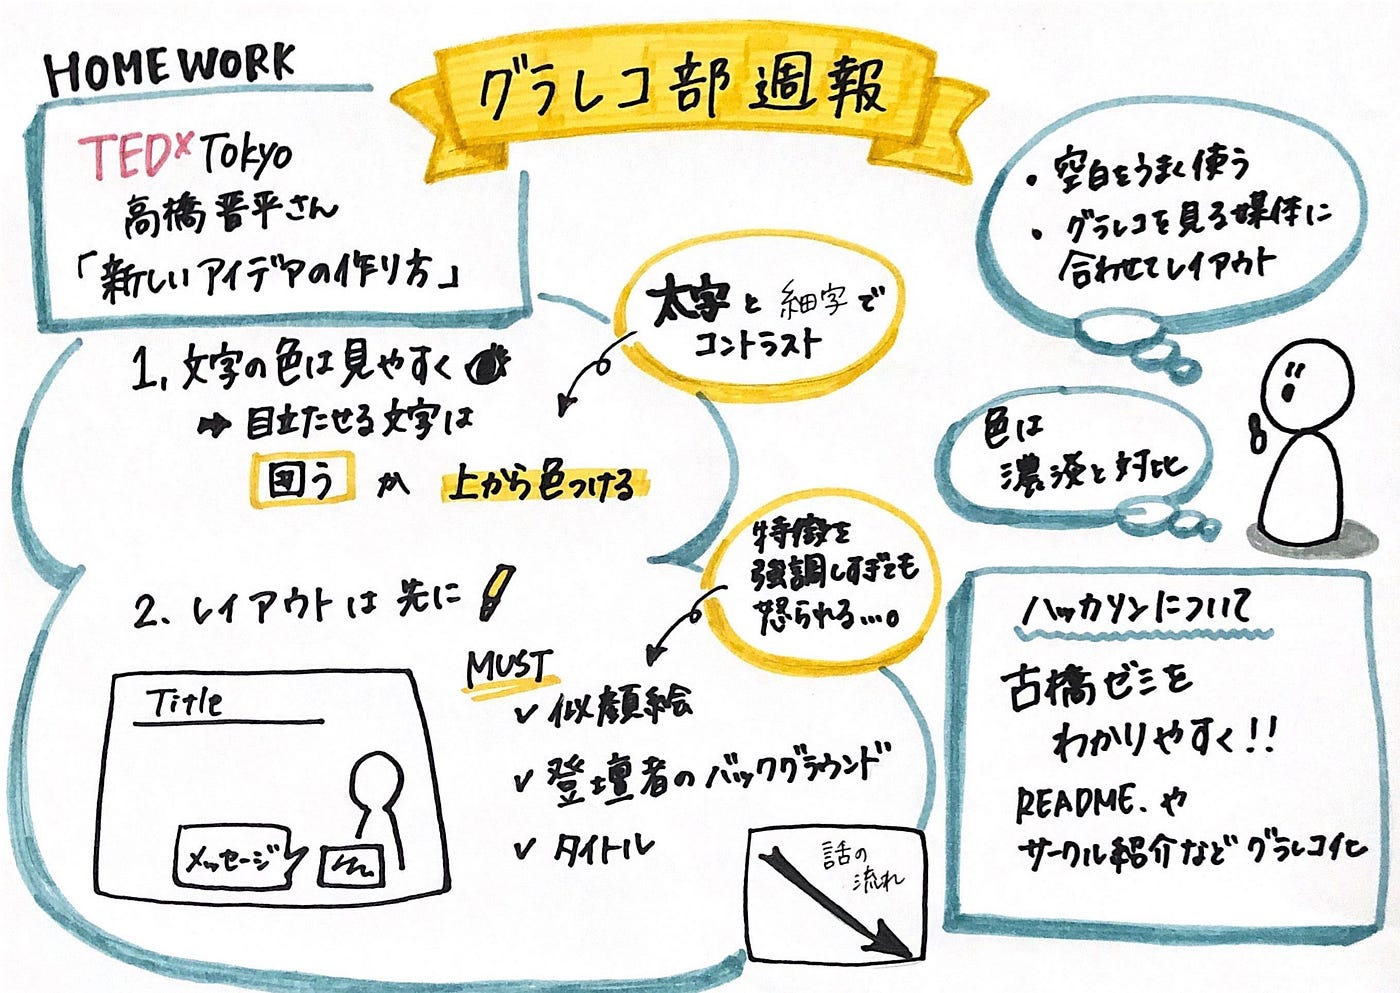 グラレコ部週報
HOMEWORK
TEDxTokyo
高橋晋平さん
「新しいアイデアの作り方」
1, 文字の色は見やすく
➡ 目立たせる文字は
囲う か 上から色つける
太字と細字で
コントラスト
2. レイアウトは先に
Title
メッセージ
MUST
✓ 似顔絵
✓ 登壇者のバックグラウンド
✓ タイトル
特徴を
強調しすぎても
怒られる…。
話の
流れ
・空白をうまく使う
・グラレコを見る媒体に
合わせてレイアウト
色は
濃淡と対比
ハッカソンについて
古橋ゼミを
わかりやすく!!
README.や
サークル紹介などグラレコ化